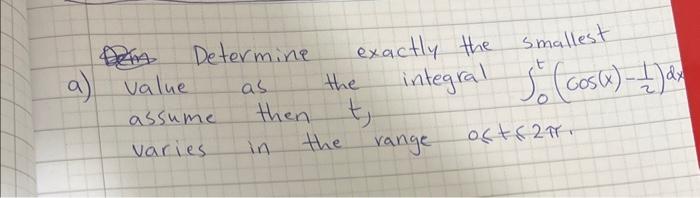 Determine exactly the smallest
a) value as the integral ∫₀ᵗ (cos(x) - 1/2) dx
assume then t,
varies in the range 0≤t≤2π.